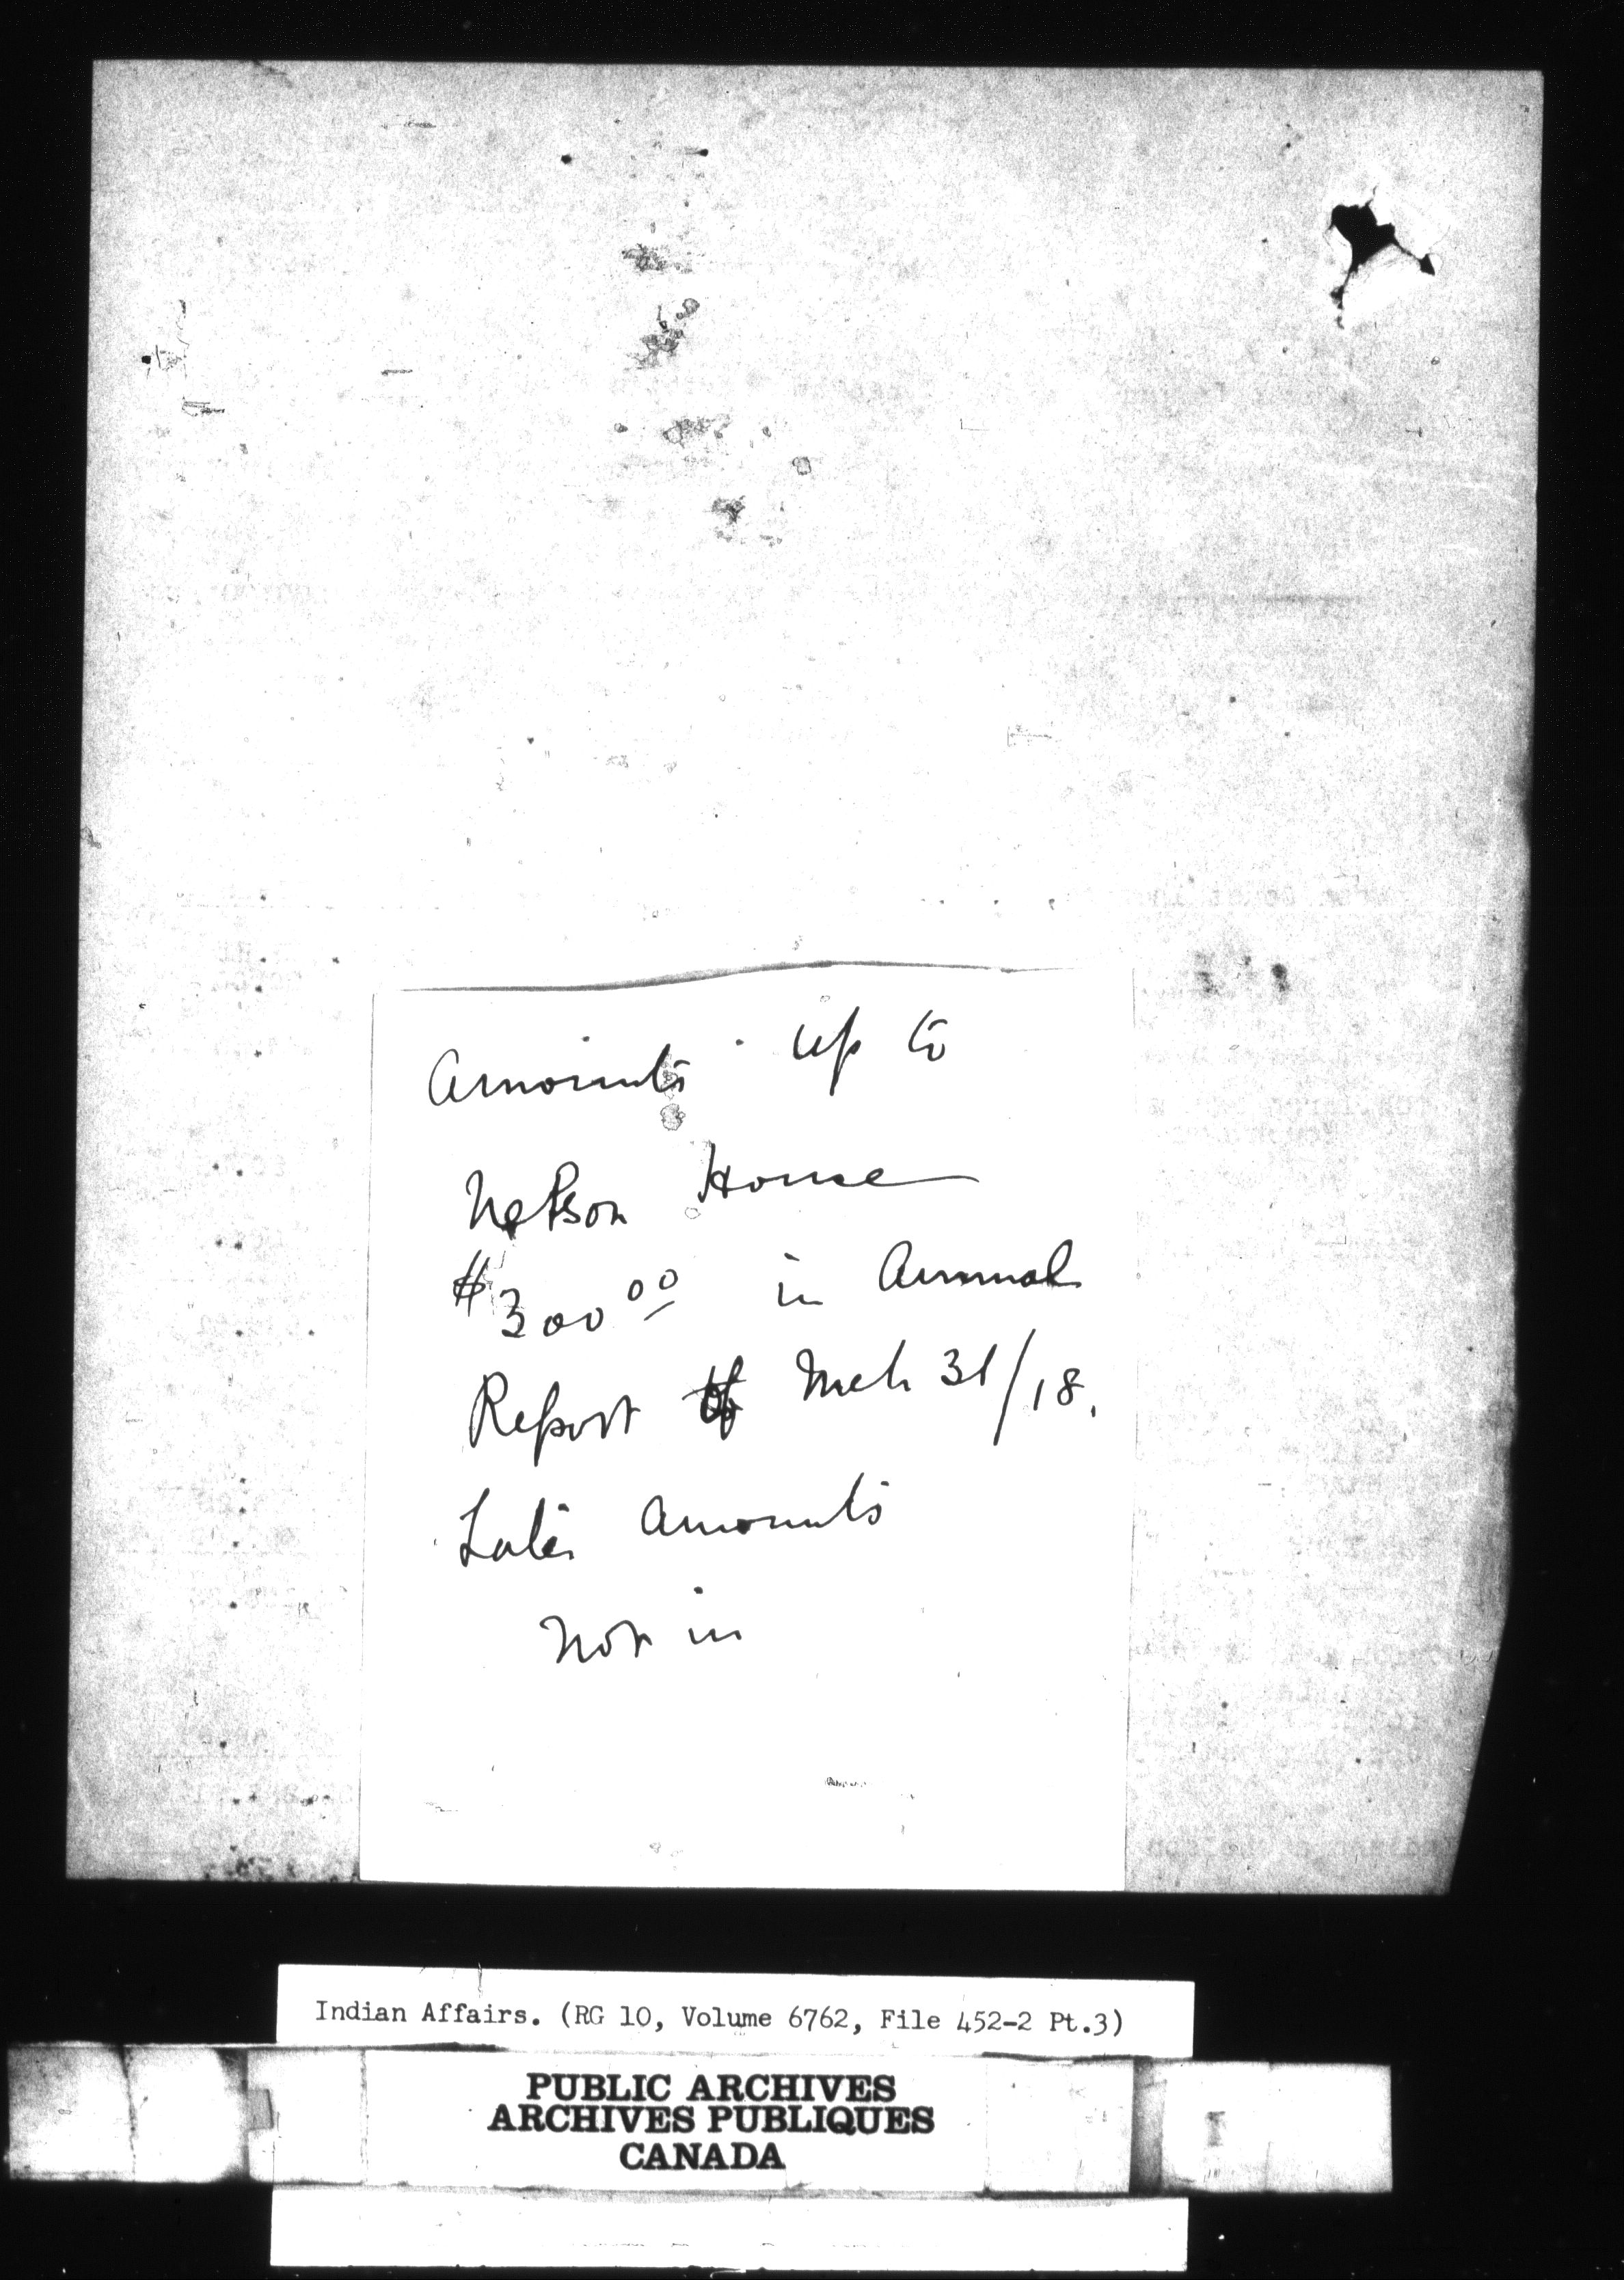 Amounts up to
Nelson House
$300.00 in Annual
Report of Mch 31/18.
Later amounts
not in
Indian Affairs. (RG 10, Volume 6762, File 452-2 Pt.3)
PUBLIC ARCHIVES
ARCHIVES PUBLIQUES
CANADA